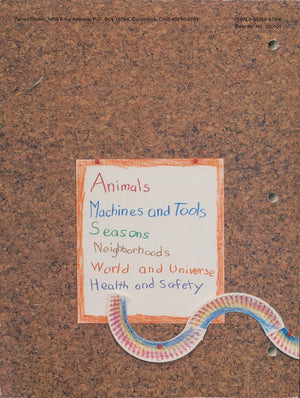 Zaner-Bloser, 1459 King Avenue, P.O. Box 16764, Columbus, Ohio 43216-6764
Animals
Machines and Tools
Seasons
Neighborhoods
World and Universe
Health and Safety